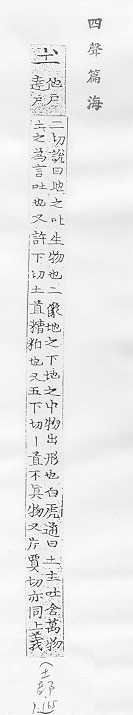 四聲篇海
土
他戶
徒戶
二切說曰地之吐生物也二象地之下地之中物出形也白虎通曰土主吐含萬物
土之為言吐也又許下切土苴糟粕也又五下切丨苴不真物又片賈切亦同上義
(土部